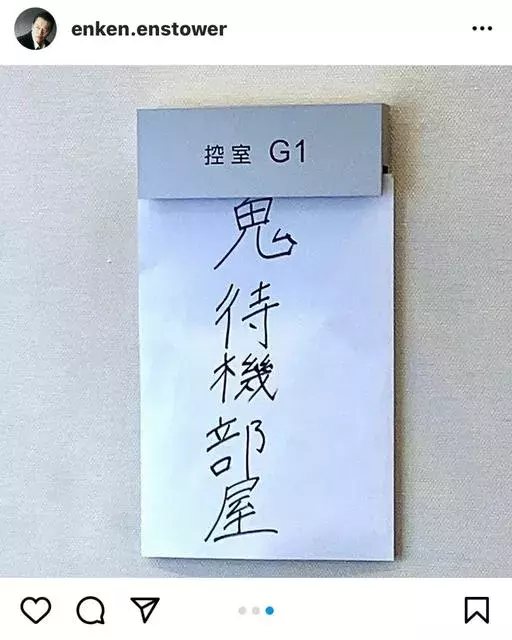 enken.enstower
控室 G1
鬼待機部屋